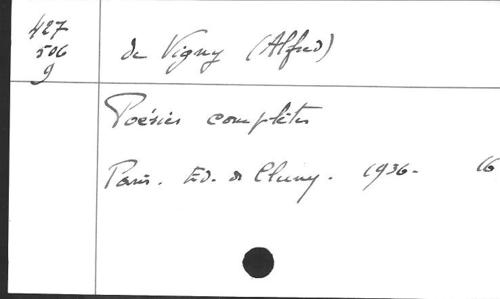 427
506
9
de Vigny (Alfred)
Poésies complètes
Paris. Ed. de Cluny. 1936. 16